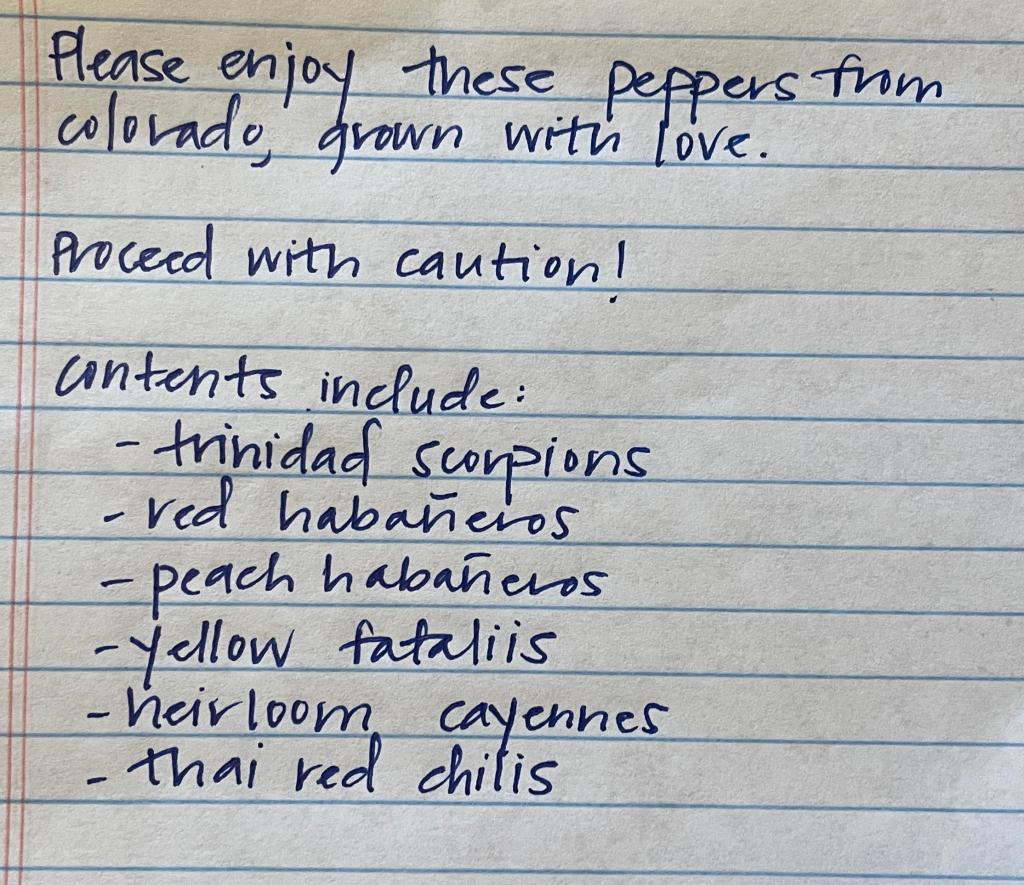 Please enjoy these peppers from
colorado, grown with love.
Proceed with caution!
contents include:
- trinidad scorpions
- red habañeros
- peach habañeros
- yellow fataliis
- heirloom cayennes
- thai red chilis